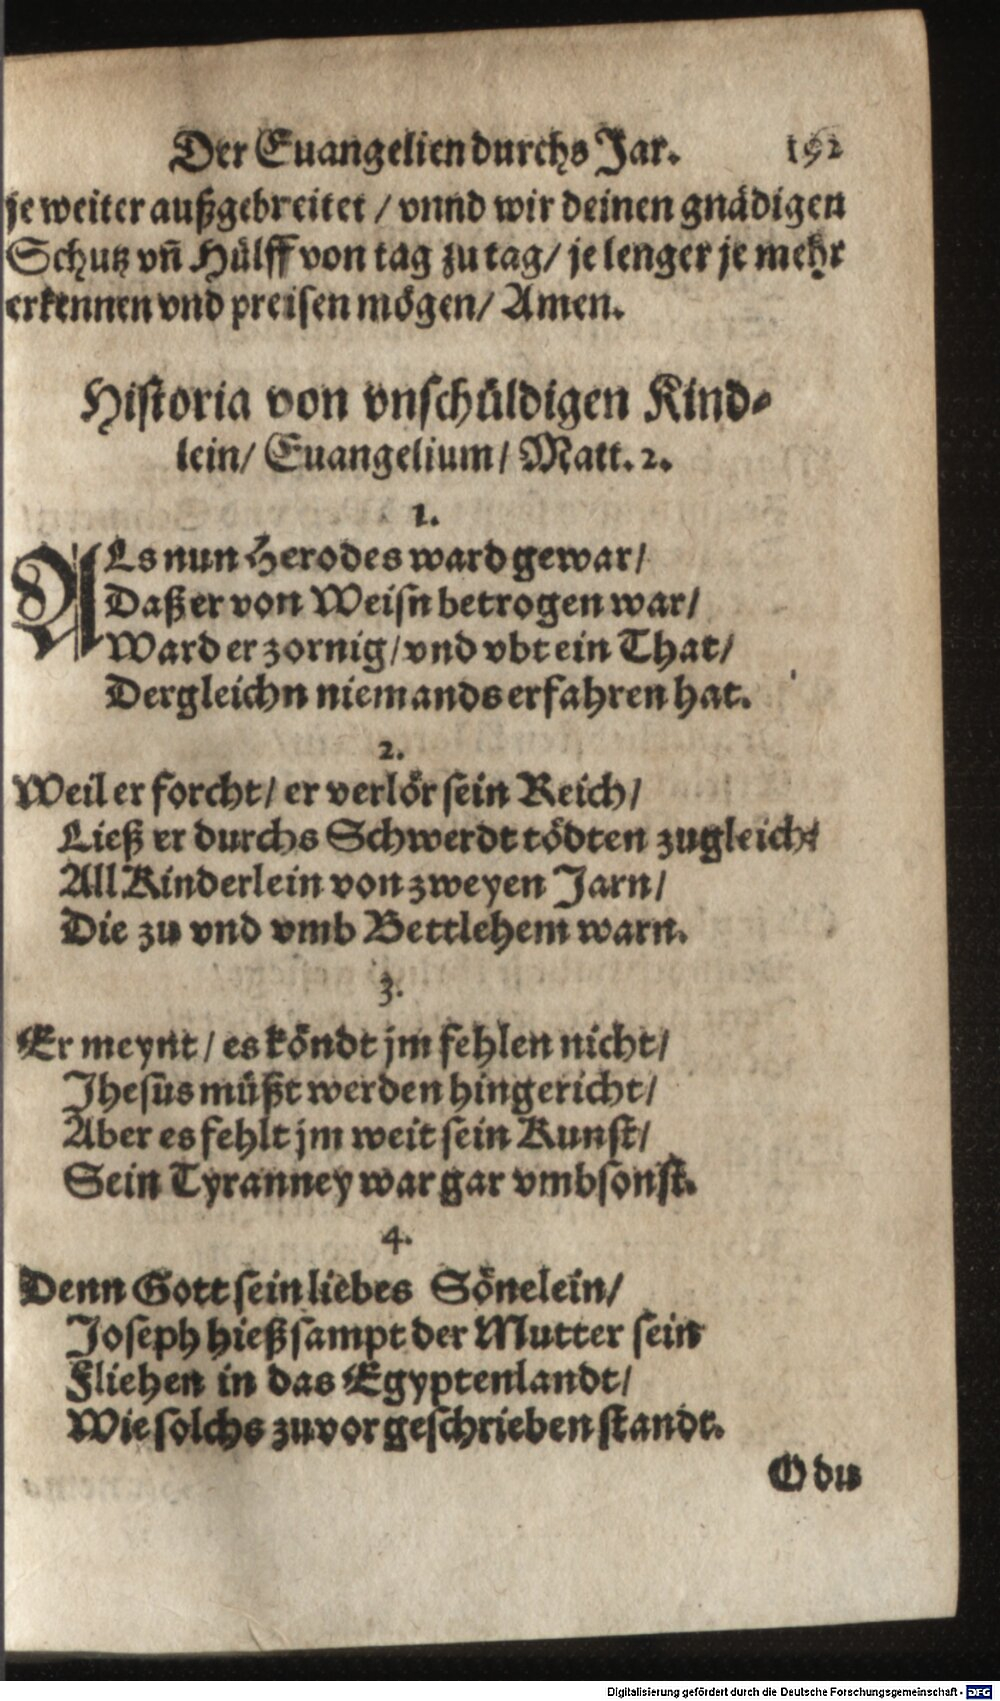 Der Euangelien durchs Jar. 192
je weiter außgebreitet / vnnd wir deinen gnädigen
Schutz vñ Hülff von tag zu tag/ je lenger je mehr
erkennen vnd preisen mögen/ Amen.
Historia von vnschüldigen Kind-
lein/ Euangelium/ Matt. 2.
1.
ALs nun Herodes ward gewar/
Daß er von Weisn betrogen war/
Ward er zornig/ vnd vbt ein That/
Dergleichn niemands erfahren hat.
2.
Weil er forcht/ er verlör sein Reich/
Ließ er durchs Schwerdt tödten zugleich/
All Kinderlein von zweyen Jarn/
Die zu vnd vmb Bettlehem warn.
3.
Er meynt/ es köndt jm fehlen nicht/
Jhesus müßt werden hingericht/
Aber es fehlt jm weit sein Kunst/
Sein Tyranney war gar vmbsonst.
4.
Denn Gott sein liebes Sönelein/
Joseph hieß sampt der Mutter sein
Fliehen in das Egyptenlandt/
Wie solchs zuvor geschrieben standt.
O du
Digitalisierung gefördert durch die Deutsche Forschungsgemeinschaft - DFG